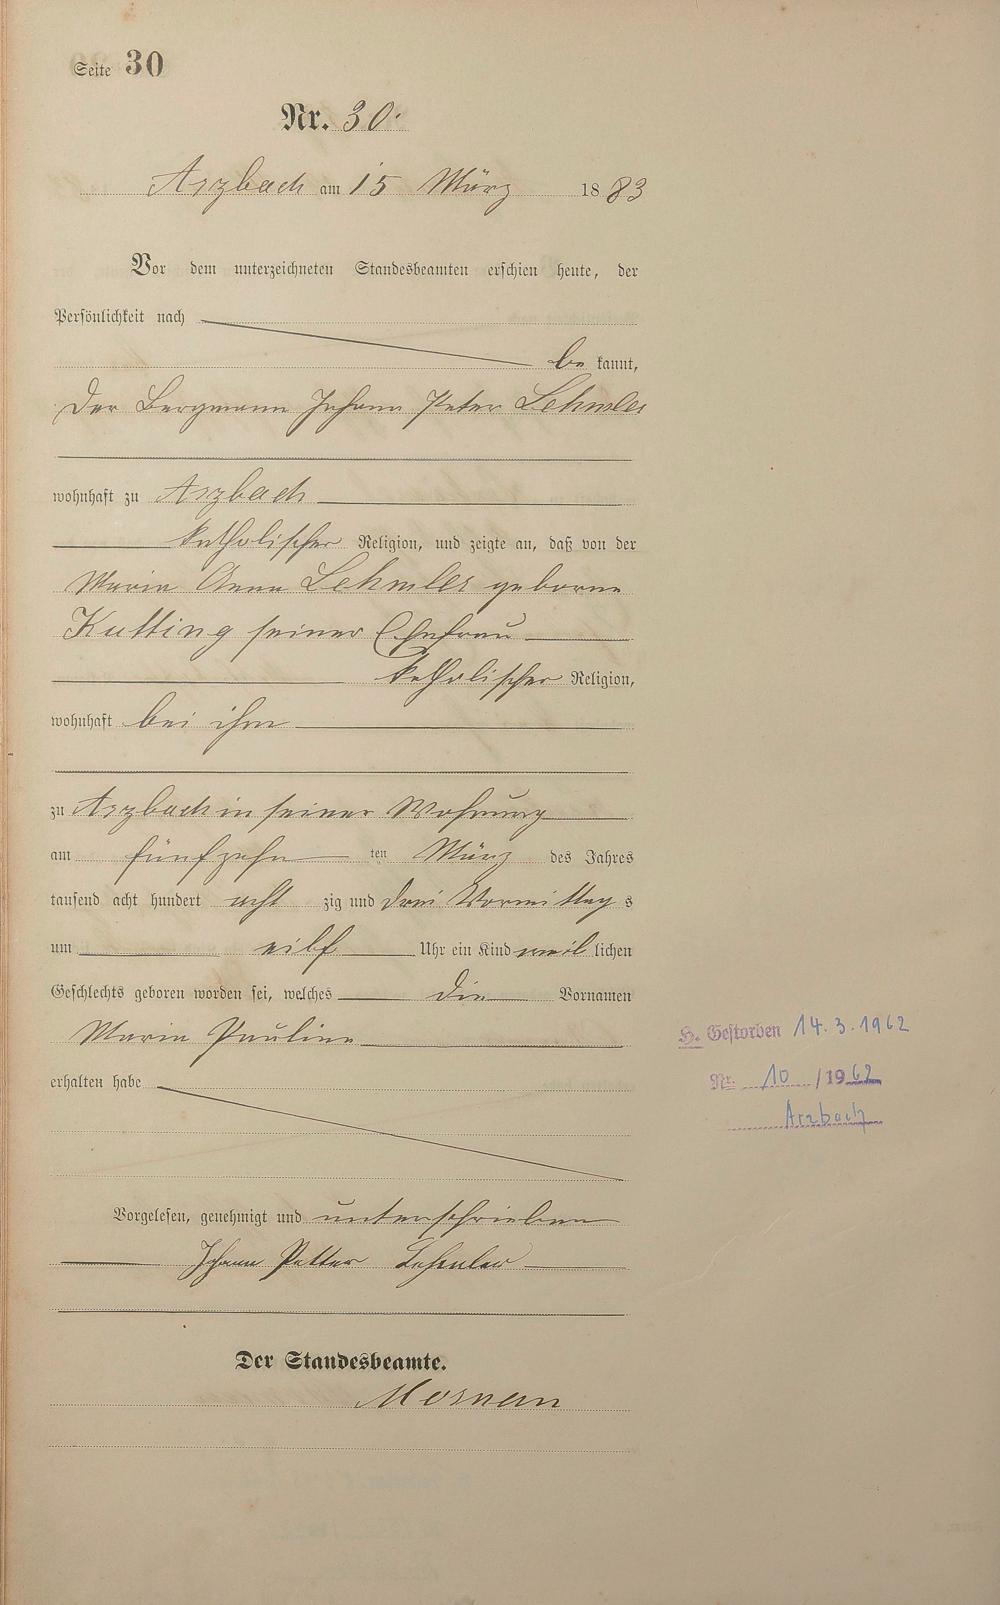 Seite 30
Nr. 30.
Arzbach am 15 März 1883
Vor dem unterzeichneten Standesbeamten erschien heute, der
Persönlichkeit nach
be kannt,
der Bergmann Johann Peter Lehmler
wohnhaft zu Arzbach
katholischer Religion, und zeigte an, daß von der
Maria Anna Lehmler geborne
Kutting seiner Ehefrau
katholischer Religion,
wohnhaft bei ihm
zu Arzbach in seiner Wohnung
am fünfzehn ten März des Jahres
tausend acht hundert acht zig und drei Vormittag s
um eilf Uhr ein Kind weib lichen
Geschlechts geboren worden sei, welches die Vornamen
Maria Pauline
erhalten habe
Vorgelesen, genehmigt und unterschrieben
Johann Petter Lehmler
Der Standesbeamte.
H. Gestorben 14.3.1962
Nr. 10 / 1962
Arzbach